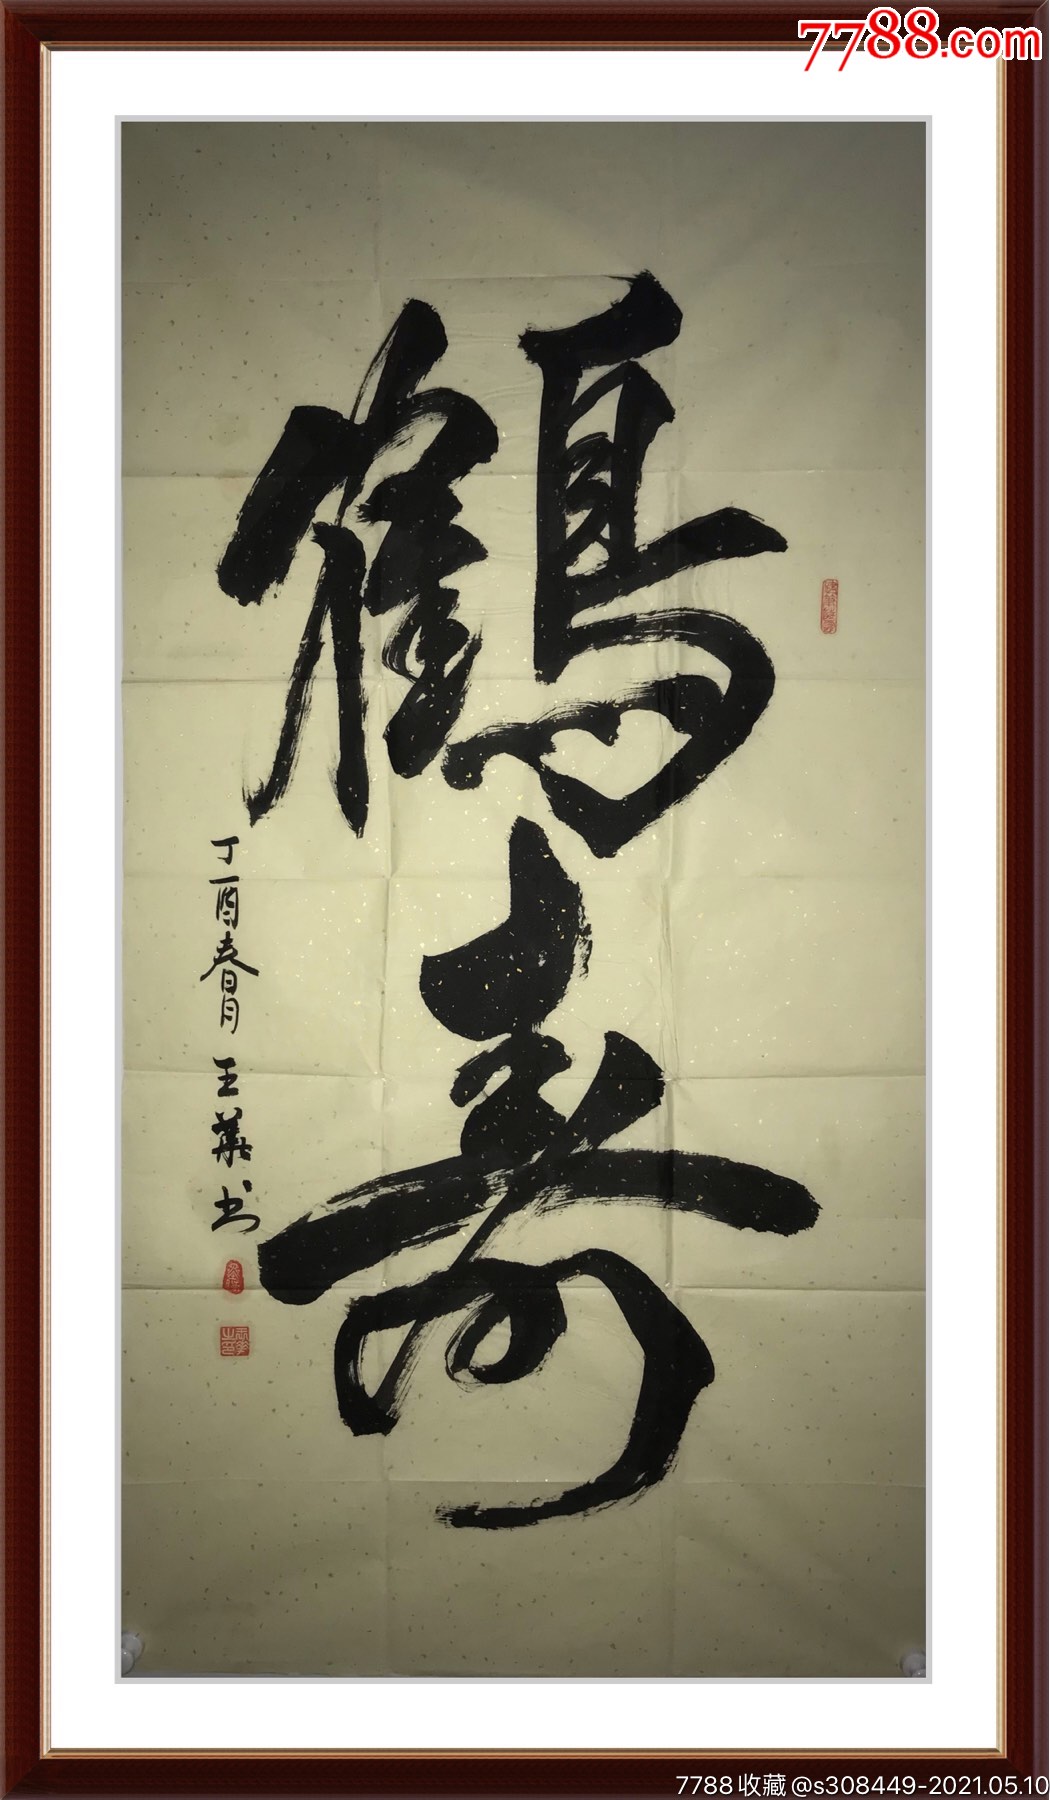 7788.com
鶴
壽
丁酉春月 王華书
7788收藏@s308449-2021.05.10